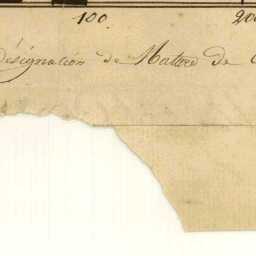 100. 200
désignation de Nattes de